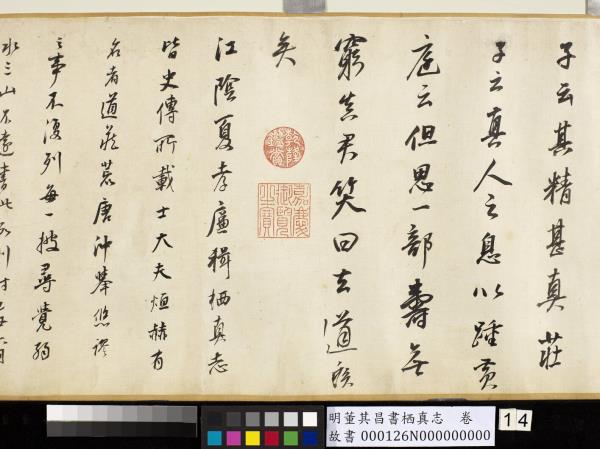 子云其精甚真莊
子云真人之息以踵黃
庭云但思一部壽無
窮真君笑曰去道遠
矣
乾隆鑑賞
嘉慶御覽之寶
江陰夏孝廉輯栖真志
皆史傳所載士大夫烜赫有
名者道藏若唐沖舉悠謬
之事不復列每一披尋覺弱
水三山不遠書此
明董其昌書栖真志 卷
故書 000126N000000000
14